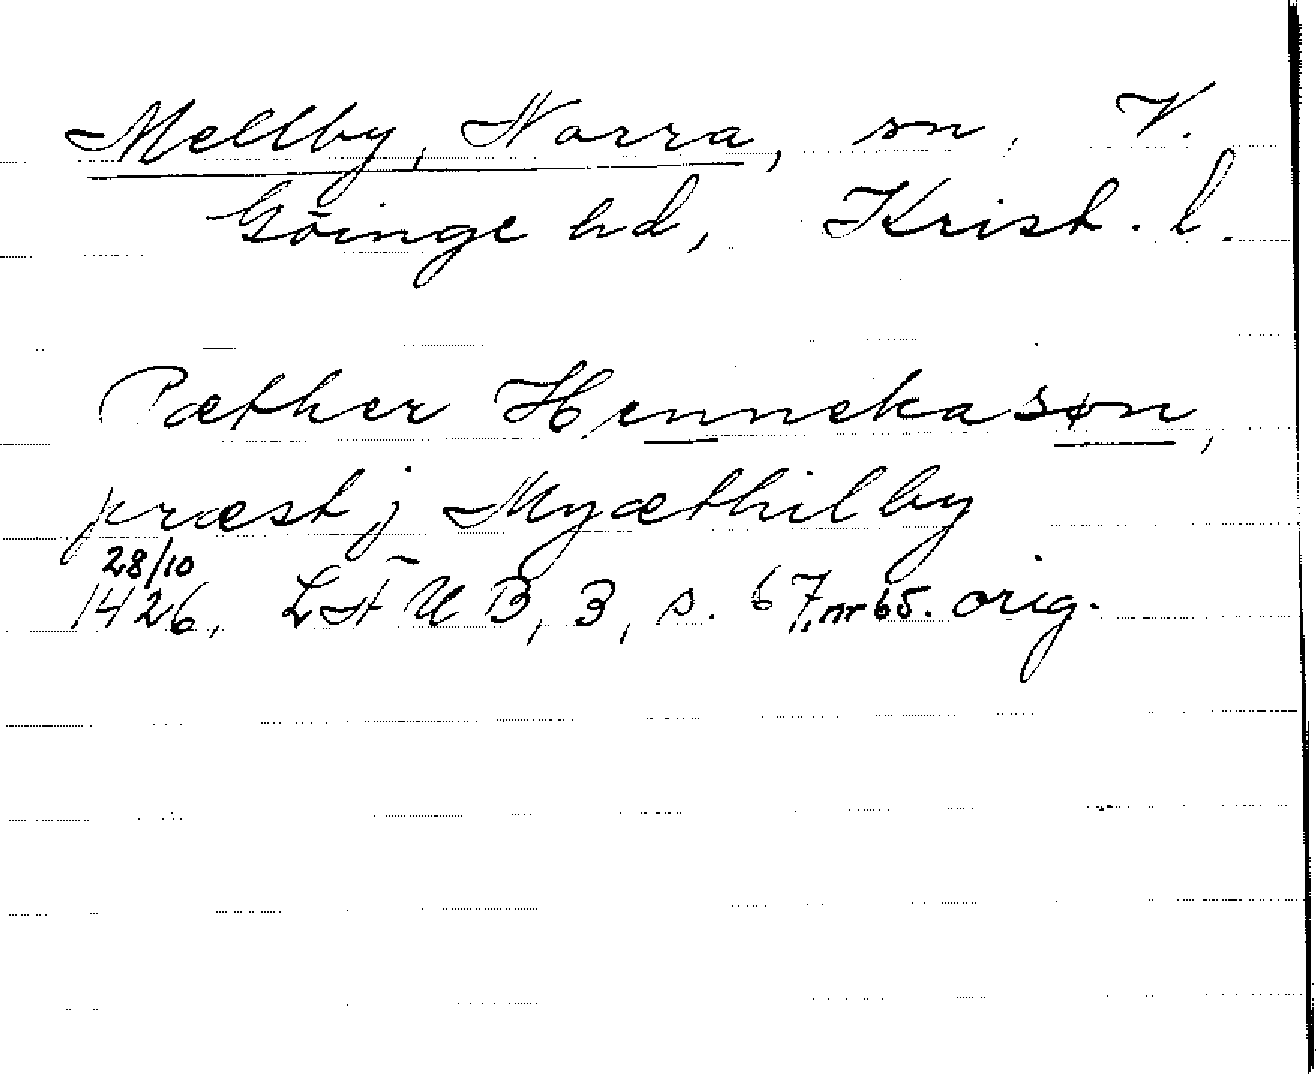 Mellby, Norra, sn, V.
Göinge hd, Krist. l.
Pæther Hennekasøn,
præst j Myæthilby
28/10
1426, LÄUB, 3, s. 67, nr 65. orig.